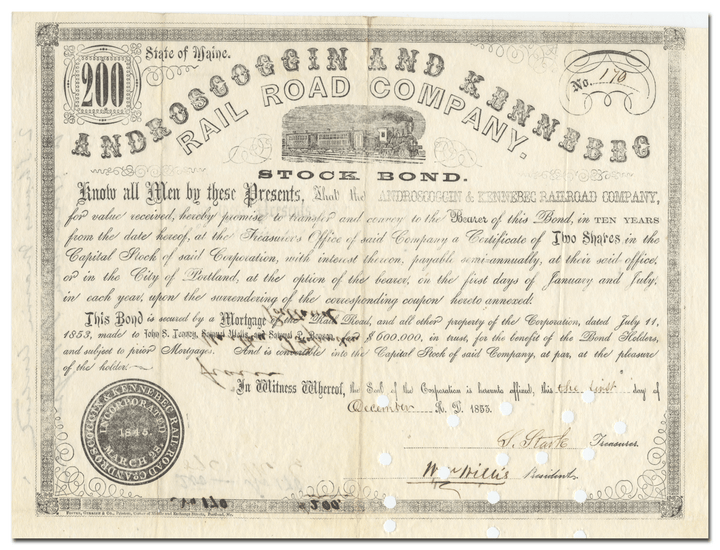 200
State of Maine.
No. 170
ANDROSCOGGIN AND KENNEBEC
RAIL ROAD COMPANY.
STOCK BOND.
Know all Men by these Presents, That the ANDROSCOGGIN & KENNEBEC RAILROAD COMPANY,
for value received, hereby promise to transfer and convey to the Bearer of this Bond, in TEN YEARS
from the date hereof, at the Treasurer's Office of said Company a Certificate of Two Shares in the
Capital Stock of said Corporation, with interest thereon, payable semi-annually, at their said office,
or in the City of Portland, at the option of the bearer, on the first days of January and July,
in each year, upon the surrendering of the corresponding coupon hereto annexed:
This Bond is secured by a Mortgage of the Rail Road, and all other property of the Corporation, dated July 11,
1853, made to John S. Tenney, Samuel and Samuel P. $600,000, in trust, for the benefit of the Bond Holders,
and subject to prior Mortgages. And is convertible into the Capital Stock of said Company, at par, at the pleasure
of the holder.
In Witness Whereof, the Seal of the Corporation is hereunto affixed, this the first day of
December A. D. 1855.
S. Stark Treasurer.
W Willis President.
ANDROSCOGGIN & KENNEBEC RAILROAD CO.
INCORPORATED
1845
MARCH
No 170
$ 200